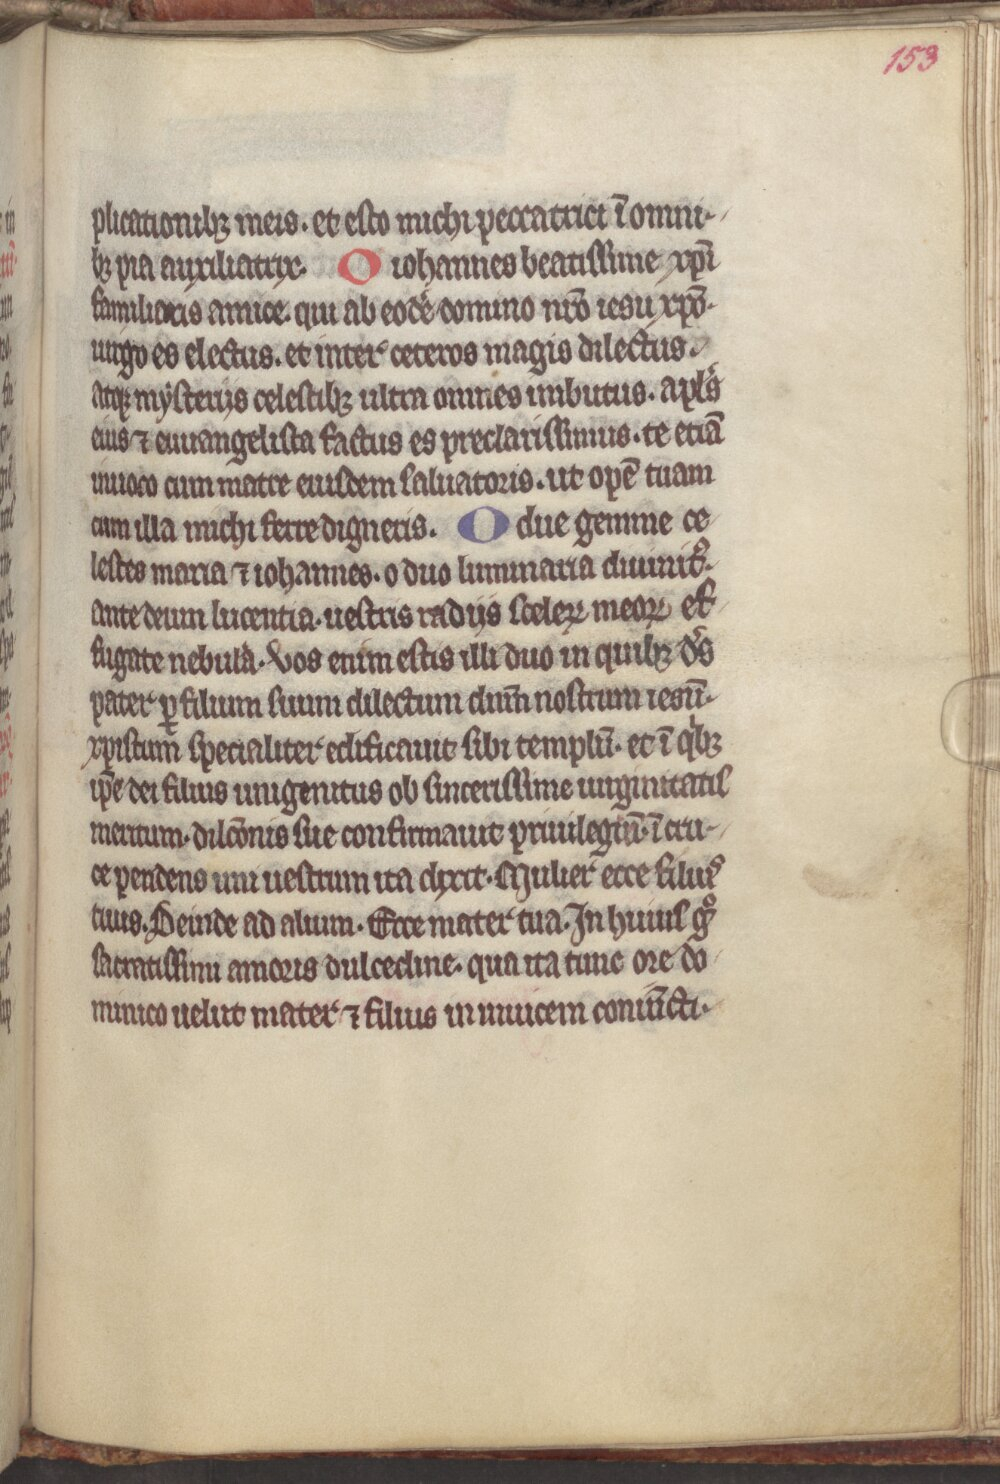 153
plicationibꝫ meis. et esto michi peccatrici ī omni-
bꝫ pia auxiliatrix. O iohannes beatissime xp̄i
familiaris amice. qui ab eodē domino nr̄o iesu xp̄o.
uirgo es electus. et inter ceteros magis dilectus.
atqꝫ mẏsterijs celestibꝫ ultra omnes imbutus. apl's
eius ⁊ euuangelista factus es preclarissimus. te etiā
inuoco cum matre eiusdem saluatoris. ut opē tuam
cum illa michi ferre digneris. O due gemme ce
lestes maria ⁊ iohannes. o duo luminaria diuinitꝰ.
ante deum lucentia. uestris radijs sceleꝝ meoꝝ ef
fugate nebula. Vos enim estis illi duo in quibꝫ d's
pater ꝑ filium suum dilectum dnm̄ nostrum iesū.
xpistum specialiter edificauit sibi templū. et ī qⁱbꝫ
ip̄e dei filius unigenitus ob sincerissime uirginitatis
meritum. dilc̄onis sue confirmauit priuilegiū. ī cru-
ce pendens uni uestrum ita dixit. Mulier ecce filiꝰ
tuus. Deinde ad alium. Ecce mater tua. In huius gͦ
sacratissimi amoris dulcedine. qua ita tunc ore do
minico uelut mater ⁊ filius in inuicem coniūcti.